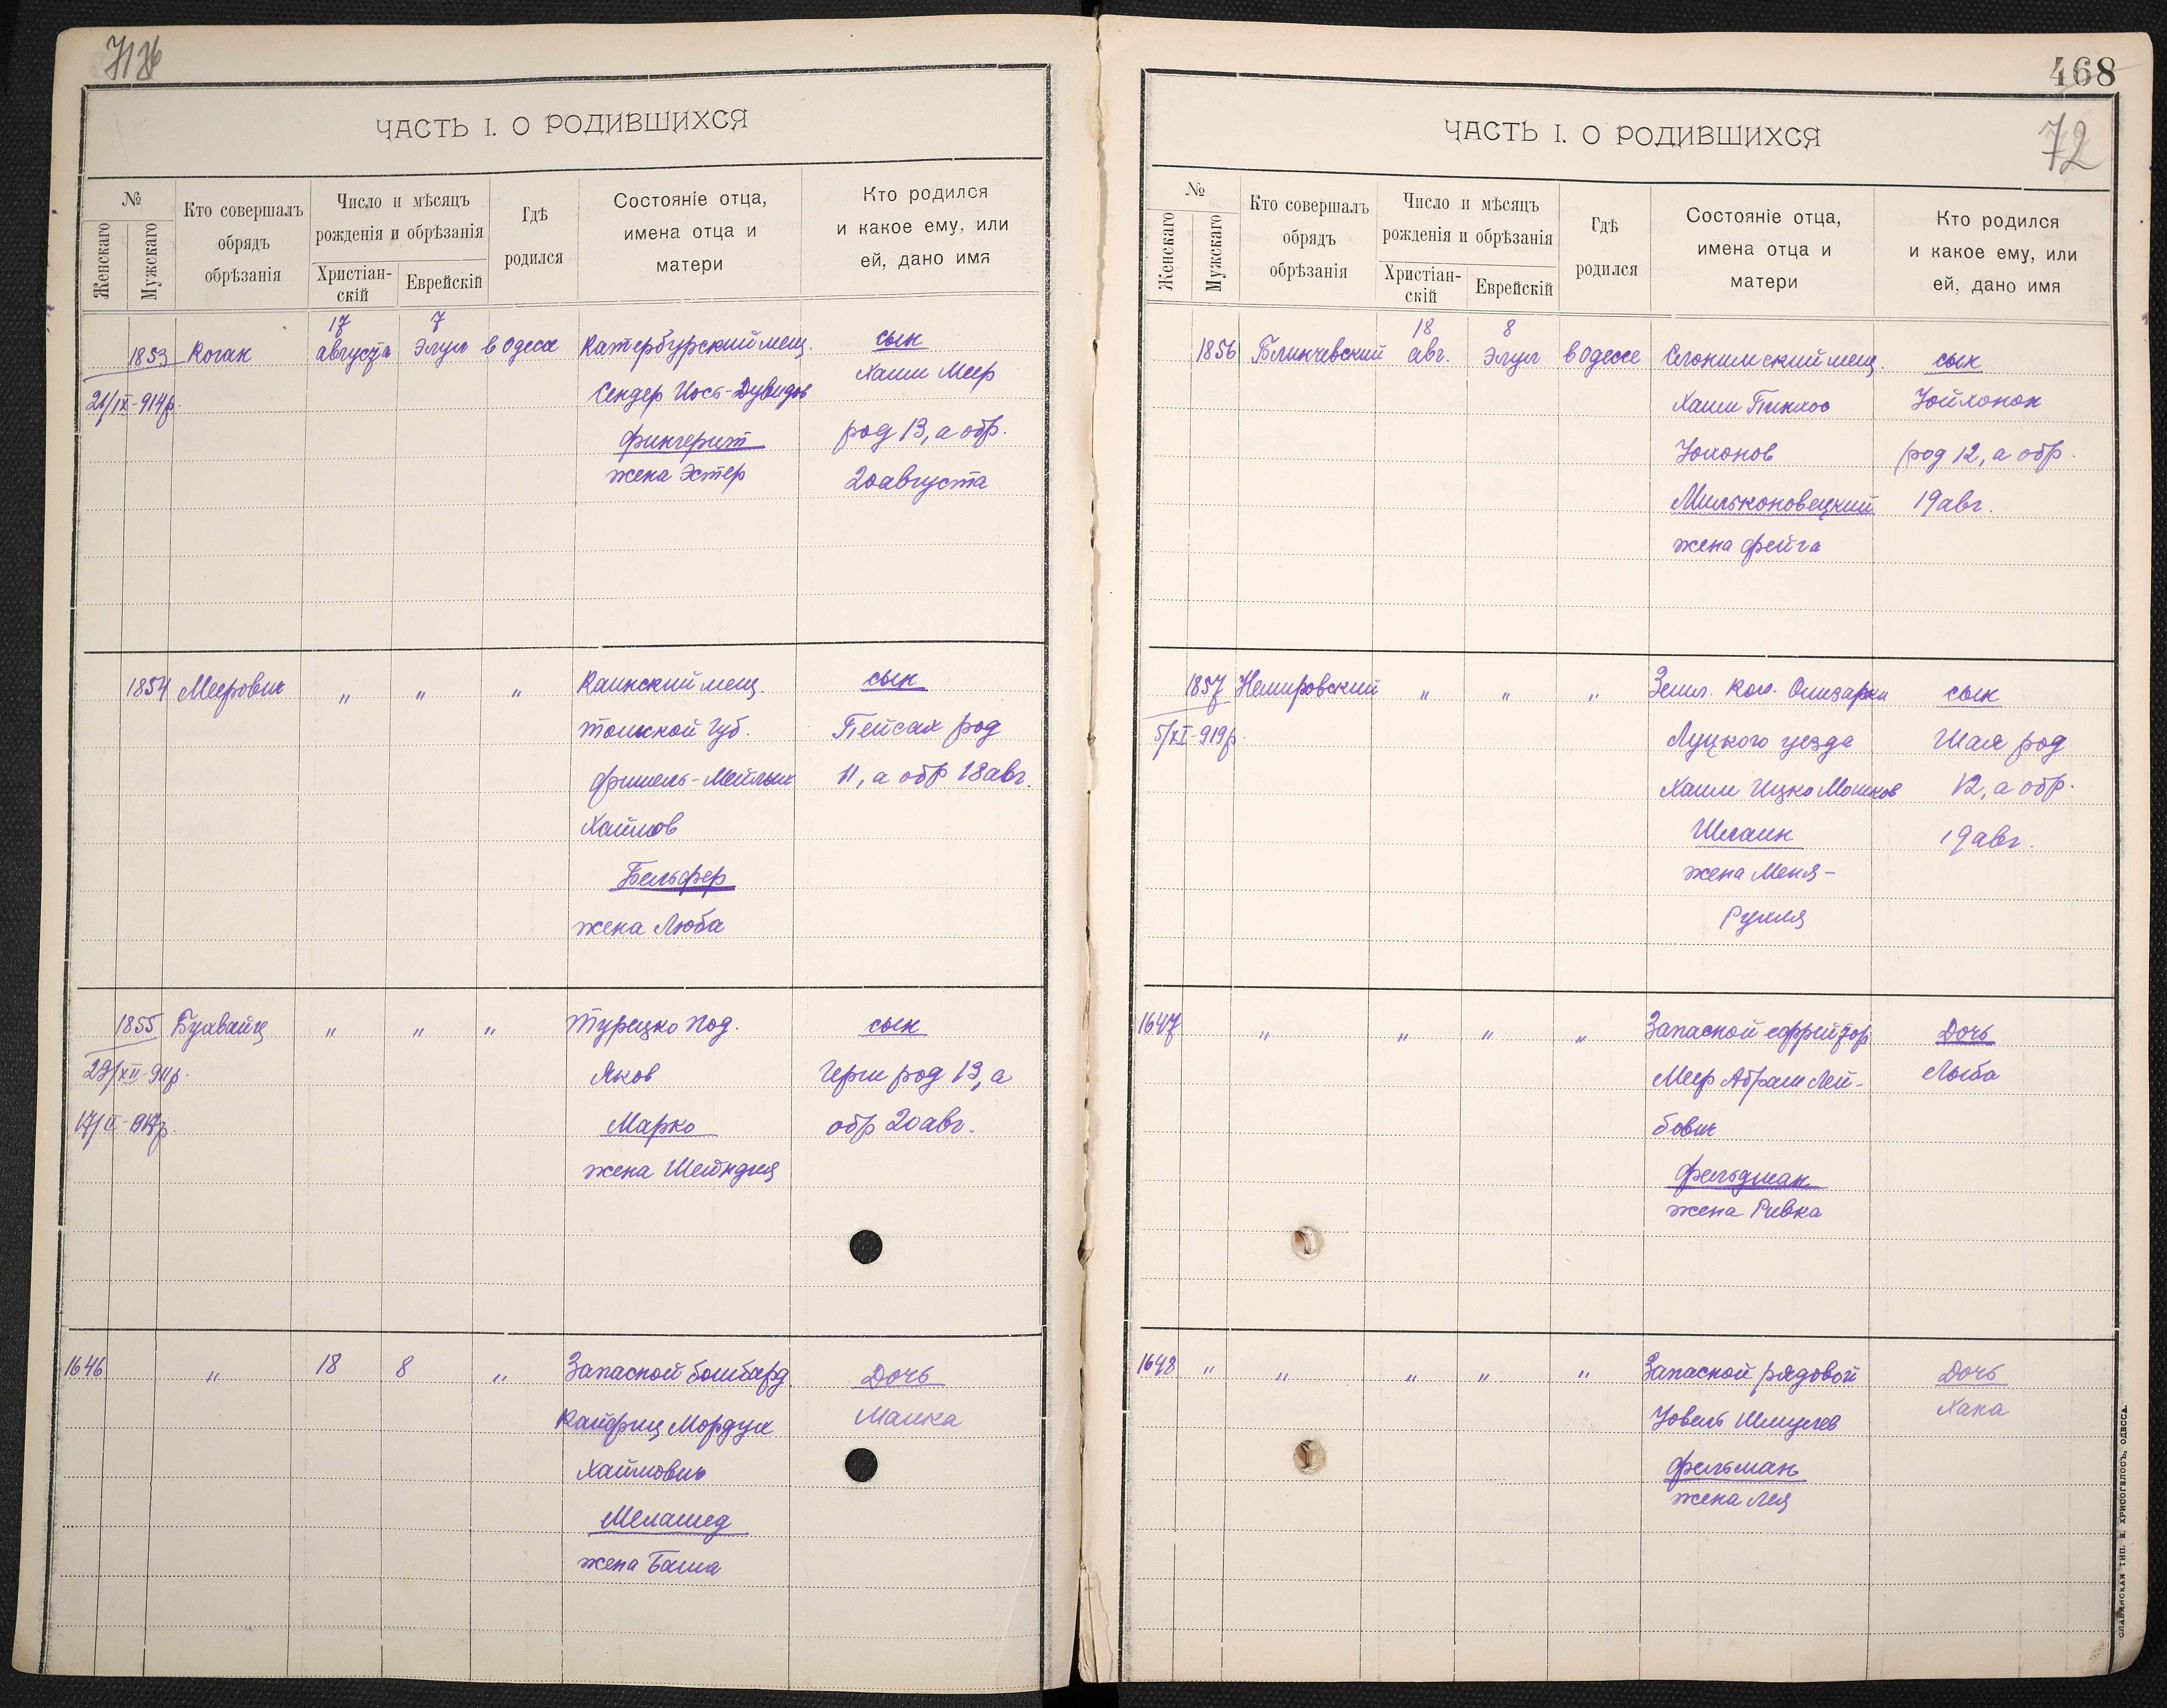 468
72
ЧАСТЬ I. О РОДИВШИХСЯ
№
Женскаго
Мужскаго
Кто совершалъ
обрядъ
обрѣзанія
Число и мѣсяцъ
рожденія и обрѣзанія
Христіан-
скій
Еврейскій
Гдѣ
родился
Состояніе отца,
имена отца и
матери
Кто родился
и какое ему, или
ей, дано имя
1853 Коган 17 августа 7 Элул в Одессе Катербурский мещ. сын
21/IX-914р. Сендер Иось-Дувидов Хаим Меер
Фингерит род 13, а обр.
жена Эстер 20 августа
1854 Меерович " " " Каинский мещ. сын
томской губ. Пейсах род
Фишель-Мейлых 11, а обр 18 авг.
Хаимов
Бельфер
жена Люба
1855 Бухвайц " " " Турецко под. сын
29/XII-911р. Яков Герш род 13, а
17/II-917р. Марко обр 20 авг.
жена Шейндля
1646 " 18 8 " Запасной бомбард. Дочь
Кайфиц Мордух Малка
Хаймович
Меламед
жена Бася
ЧАСТЬ I. О РОДИВШИХСЯ
№
Женскаго
Мужскаго
Кто совершалъ
обрядъ
обрѣзанія
Число и мѣсяцъ
рожденія и обрѣзанія
Христіан-
скій
Еврейскій
Гдѣ
родился
Состояніе отца,
имена отца и
матери
Кто родился
и какое ему, или
ей, дано имя
1856 Блинчевский 18 авг. 8 Элул в Одессе Слонимский мещ. сын
Хаим Пинхос Иойхонон
Иохонов род 12, а обр.
Мильконовецкий 19 авг.
жена Фейга
1857 Немировский " " " Земл. кол. Олизарки сын
5/XI-919р. Луцкого уезда Шая род
Хаим Ицко Мошков 12, а обр.
Шлаин 19 авг.
жена Меня-
Рухля
1647 " " " " Запасной ефрейтор Дочь
Меер Абрам Лей- Люба
бович
Фельдман
жена Ривка
1648 " " " " " Запасной рядовой Дочь
Иовель Шмулев Хана
Фельман
жена Лея
СЛАВЯНСКАЯ ТИП. Е. ХРИСОГЕЛОСЪ, ОДЕССА.